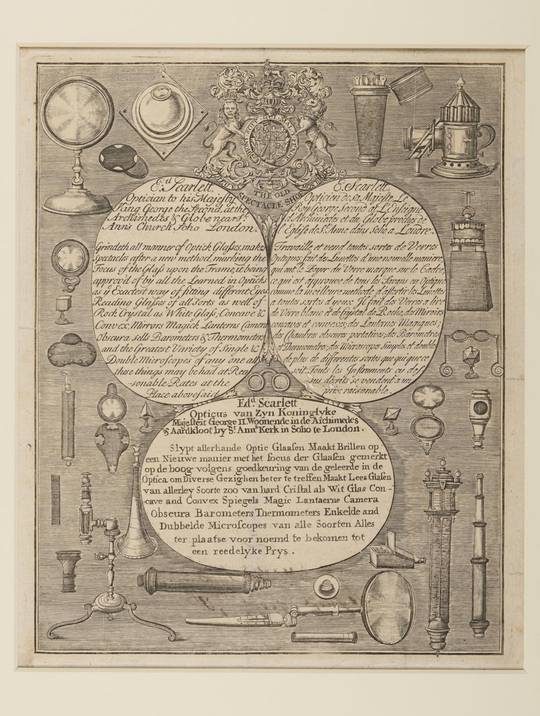 THE OLD SPECTACLE SHOP
Ed. Scarlett
Optician to his Majesty
King George the Second, at the
Archimedes & Globe near St.
Ann's Church Soho London.
Grindeth all manner of Optick Glasses, makes
Spectacles after a new method, marking the
Focus of the Glass upon the Frame, it being
approv'd of by all the Learned in Opticks
as ye Exactest way of fitting different Eyes
Reading Glasses of all Sorts as well of
Rock Crystal as White Glass, Concave &
Convex Mirrors Magick Lanterns Camera
Obscura sells Barometers & Thermometers
and the Greatest Variety of Single &
Double Microscopes of any one all
that things may be had at Rea=
sonable Rates at the
Place abovesaid
E. Scarlett
Opticien de sa Majesté Le
Roy George Second a L'enseigne
d'Archimedes et du Globe proche de
L'Eglise de Ste Anne dans Soho a Londre.
Travaille, et vend toutes sortes de Verres
Optiques, fait des Lunettes d'une nouvelle maniere,
qui ont le Foyer du Verre marqué sur le Cadre,
ce qui est approuvé de tous les
a toutes sortes d'yeux. Il fait des Verres a lire
de Verre blanc et de Cristal de Roche, des Miroirs
concaves et convexes, des Lanternes Magiques,
des Chambres obscures portatives, des Barometres,
et Thermometres, des Microscopes Simples et doubles
de plus de differentes sortes que qui que ce
soit. Tous les Instruments
sus dits se vendent a un
prix raisonable
Edd. Scarlett
Opticus van Zyn Koninglyke
Majesteit George II. Woonende in de Archimedes
& Aardkloot by St. Anns Kerk in Soho te London.
Slypt allerhande Optic Glaasen Maakt Brillen op
een Nieuwe manier met het focus der Glaasen gemerkt
op de boog volgens goedkeuring van de geleerde in de
Optica om Diverse Gezighen beter te treffen Maakt Lees Glasen
van allerley Soorte zoo van hard Cristal als Wit Glas Con-
cave and Convex Spiegels Magic Lantaerns Camera
Obscura Barometers Thermometers Enkelde and
Dubbelde Microscopes van alle Soorten Alles
ter plaatse voor noemd te bekomen tot
een reedelyke Prys.